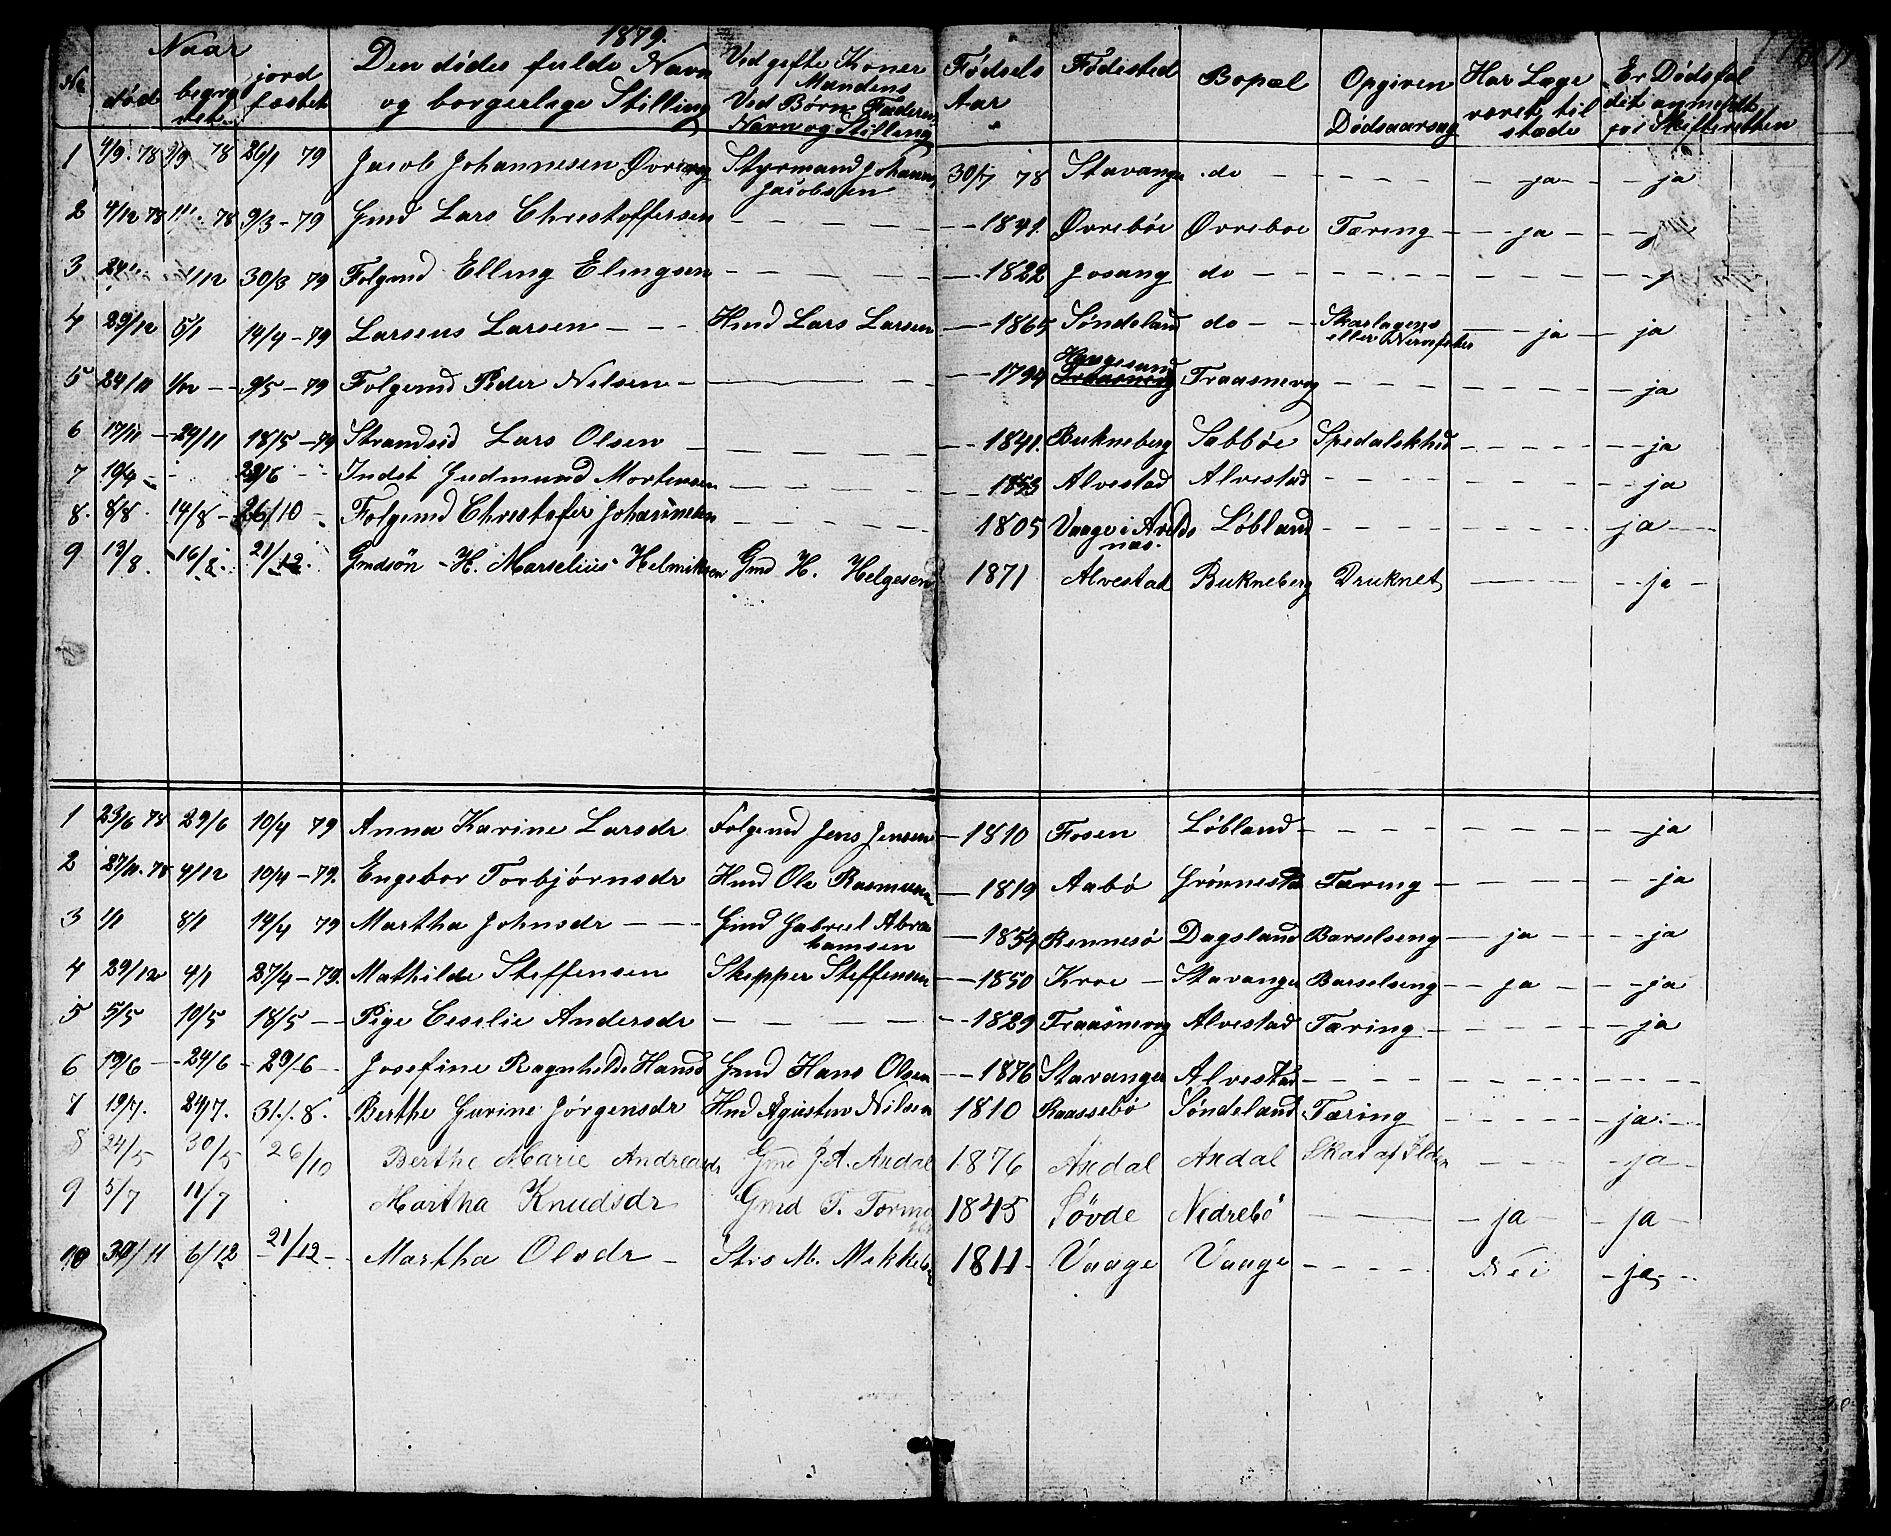 1879.
No | Naar død | begravet | jordfæstet | Den dødes fulde Navn og borgerlige Stilling | Ved gifte Koner Mandens Ved Børn Faderens Navn og Stilling | Fødsels Aar | Fødested | Bopæl | Opgiven Dødsaarsag | Har Læge været til stæde | Er Dødsfaldet anmeldt for Skifteretten
1 4/9. 78 9/9 78 26/1 79 Jacob Johannesen Øvrevig Styrmand Johannes Jacobsen 30/7 78 Stavanger do - - - - ja - - ja
2 4/12 78 78 9/3 - 79 Gmd Lars Christoffersen - - - - 1841. Ørrebøe Ørreboe Tæring - - ja - -
3 1/12 30/3 79 Folgemd Elling Elingsen - - - - 1822 Josang do - - - -
4 29/12 5/1 14/4 - 79 Larseus Larsen - - - Hmd Lars Larsen - - 1865 Søndeland do - - Skarlagens eller Nervefeber - ja - ja
5 24/11 1/12 - - 9/5 - 79 Folgemd Peder Nelsen - - - - 1794 Haugesund Traasnevig Traasnevig - - - - ja
6 17/11 - 29/11 18/5 - 79 Strandsid Lars Olsen - - - - 1841. Bukneberg Sabbøe Spedalskhed - - - - ja
7 19/4 - - 29/6 Indst Gudmund Mortensen - - - - 1853 Alvestad Alvestad - - - - ja
8. 8/8. 14/8 - 26/10 - Folgemd Christofer Johannesen - - - - 1805 Vaage i Avaldsnæs. Løbland - - - - ja -
9 13/8. 16/8. 21/12. Gmdsön - H. Marselius Helmiksen Gmd H. Helgesen 1871 Alvestad Bukneberg Druknet - - - ja -
1 23/6 78 29/6 10/4 79 Anna Karine Larsdr Folgemd Jens Jensen - 1810 Fosen Løbland - - - - ja
2 27/11. 78 4/12 10/4 - 79. Engebor Torbjørnsdr Hmd Ole Rasmussen - 1819 Aabø Grønnestad Tæring - - - - ja
3 1/1 8/1 14/4 79 Martha Johnsdr - - - Gmd Gabreel Abrahamsen - 1854 Rennesø Dagsland Barselseng - ja - - ja
4 29/12 4/1 27/4 - 79. Mathilde Steffensen Skepper Steffensen - - 1850 Kroe - Stavanger Barselseng - - ja - - ja
5 5/5 10/5 18/5 - - Pige Ceselie Andersdr - - - - 1829 Traasnevig Alvestad Tæring - - - - ja
6 19/6 - - 24/6 - 29/6 - Josefine Ragnhelde Hansd Gmd Hans Olsen - - 1876 Stavanger Alvestad - - - -
7 19/7. 24/7. 31./8. Berthe Gurine Jørgensdr Hmd Agusten Nilsen 1810 Raassebø Søndeland Tæring - - - - ja. -
8 24/5 30/5 26/10 Berthe Marie Andreasdr Gmd J. A. Axdal 1876 Axdal Axdal Skat af Ilden - - - ja -
9 5/7 11/7 Martha Knudsdr Gmd T. 1845 Søvde Nedrebö - - ja - - ja -
10 30/11 6/12 - 21/12 - Martha Olsdr - Sths M. Mekkelsen 1811 - Vaage Vaage - - - - Nei - ja -